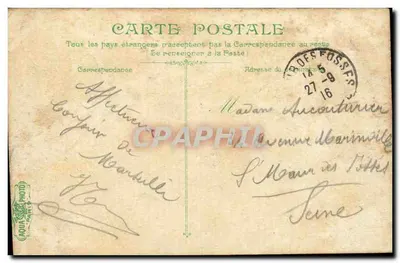 CARTE POSTALE
Tous les pays étrangers n'acceptent pas la Correspondance au recto
Se renseigner à la Poste
Correspondance
Adresse du
R DES FOSSÉS
14 5
27-9
16
Affectueux
bonjour de
Marseille
CPARAMA
Madame Aucouturier
avenue Marinville
St Maur des Fossés
Seine
AQUA PHOTO